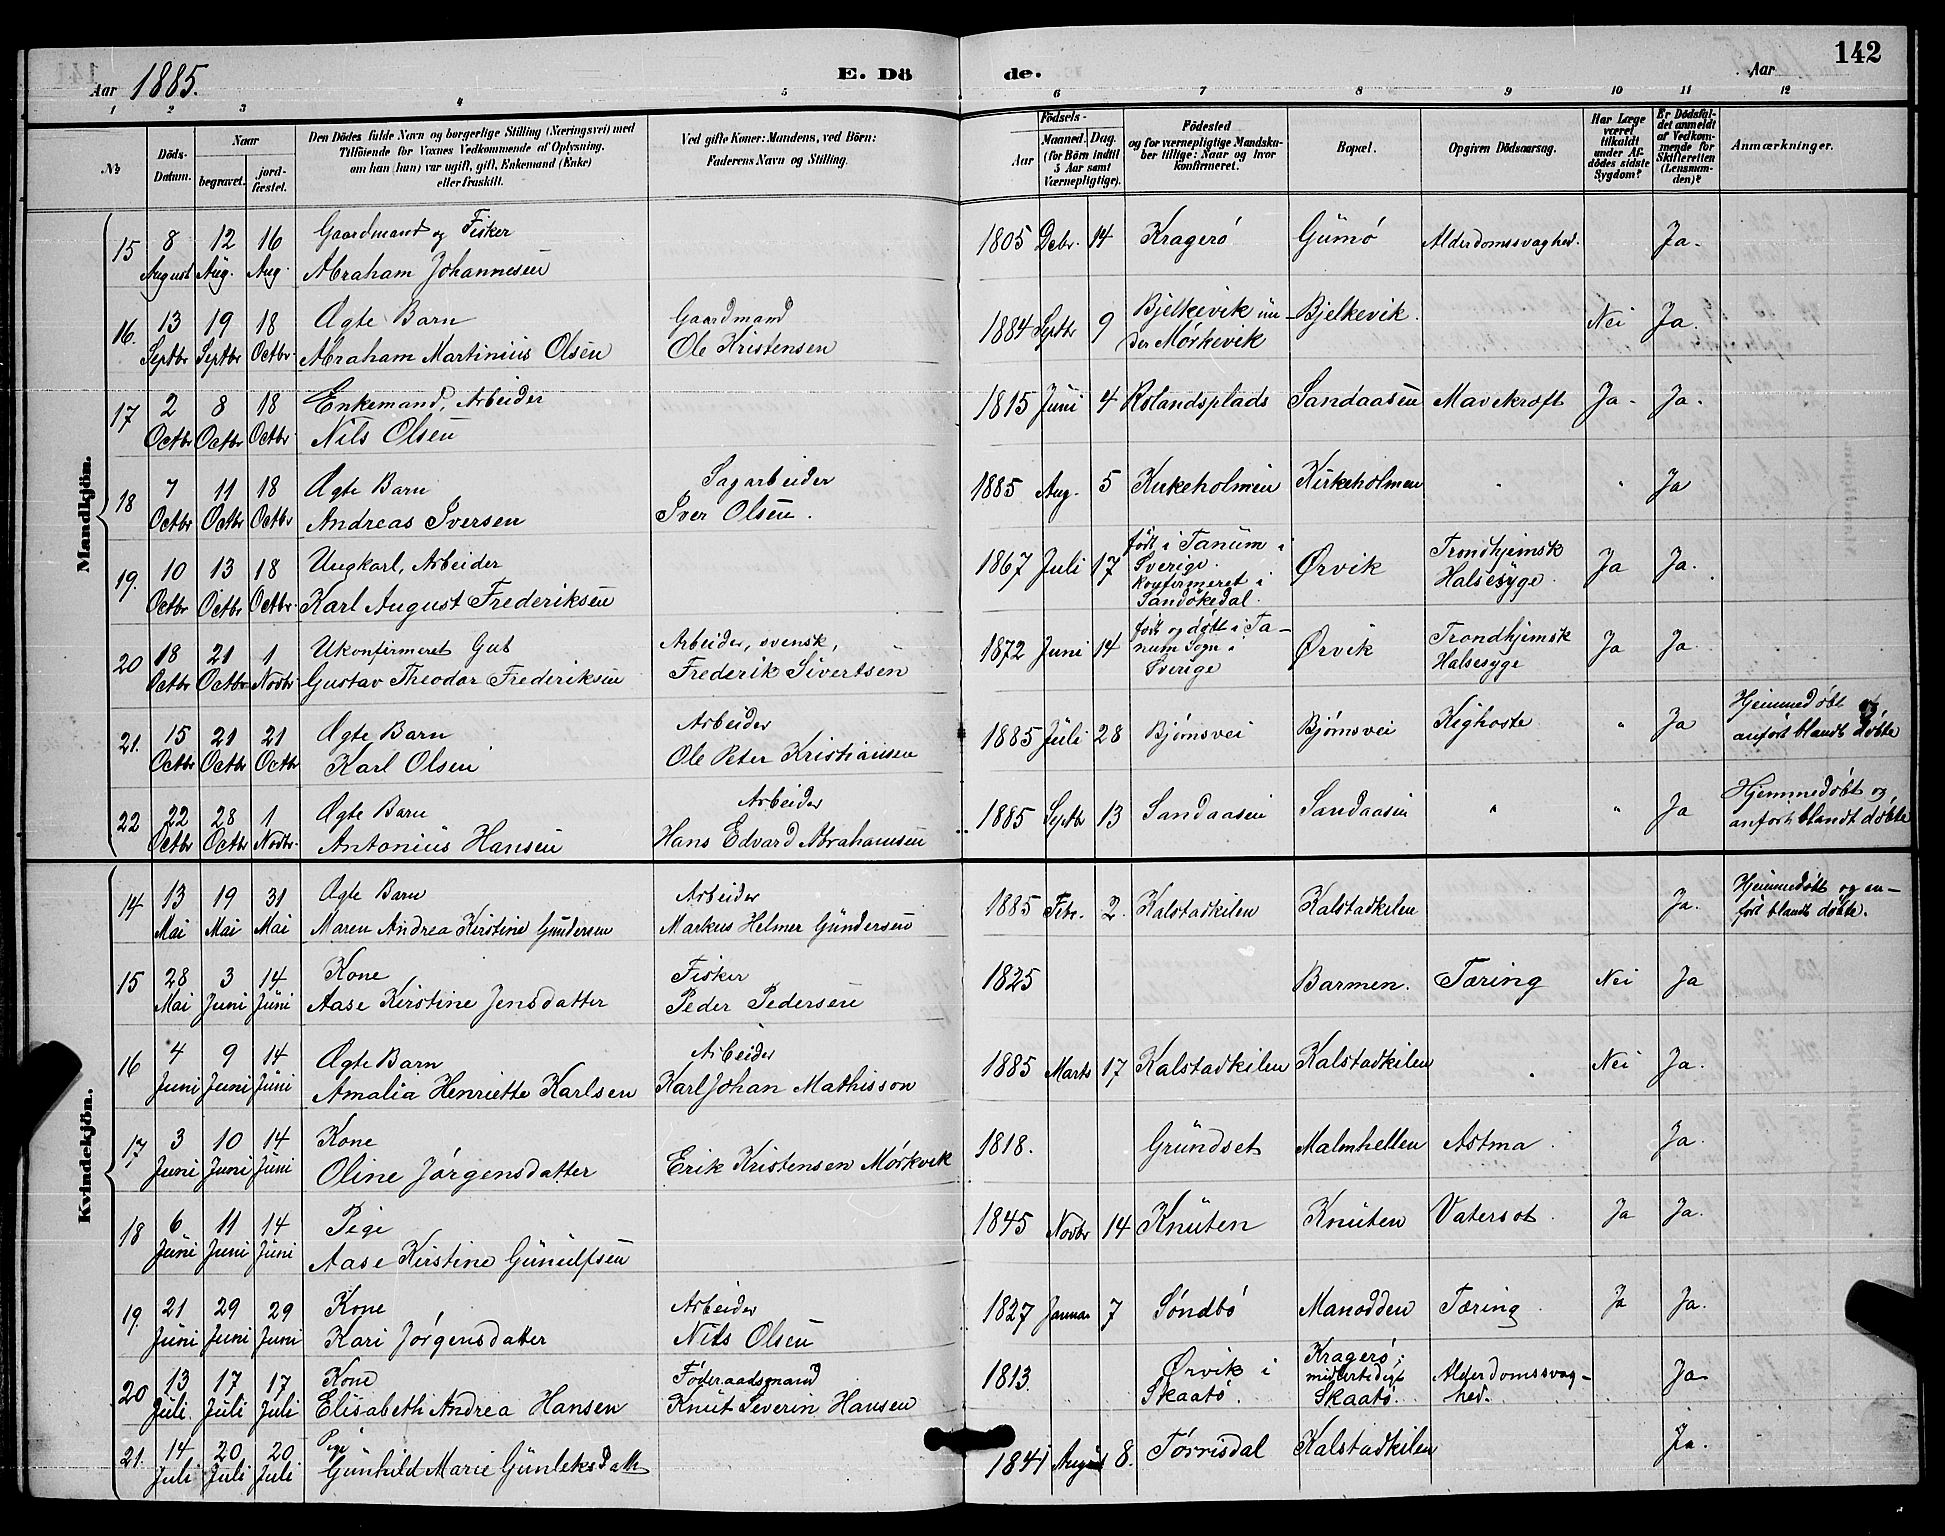 Aar 1885. E. Dö de. Aar 142
1 2 3 4 5 6 7 8 9 10 11 12
No Döds-Datum. Naar begravet. jordfæstet. Den Dödes fulde Navn og borgerlige Stilling (Næringsvei) med Tilföiende for Voxnes Vedkommende af Oplysning, om han (hun) var ugift, gift, Enkemand (Enke) eller fraskilt. Ved gifte Koner: Mandens, ved Börn: Faderens Navn og Stilling. Födsels- Aar Maaned. Dag. (for Börn indtil 5 Aar samt Værnepligtige). Födested og for værnepligtige Mandskaber tillige: Naar og hvor konfirmeret. Bopæl. Opgiven Dödsaarsag. Har Læge været tilkaldt under Afdödes sidste Sygdom? Er Dödsfaldet anmeldt af Vedkommende for Skifteretten (Lensmanden)? Anmærkninger.
Mandkjön.
15 8 August 12 Aug. 16 Aug. Gaardmand og Fisker Abraham Johannesen 1805 Debr. 14 Kragerø Gumø Alderdomssvaghed. Ja.
16. 13 Septbr 19 Septbr 18 Octbr. Ægte Barn Abraham Martinius Olsen Gaardmand Ole Kristensen 1884 Septbr 9 Bjelkevik under Mørkevik Bjelkevik. Nei Ja.
17 2 Octbr 8 Octbr 18 Octbr. Enkemand, Arbeider Nils Olsen 1815 Juni 4 Rolandsplads Sandaasen Mavekræft Ja. Ja.
18 7 Octbr 11 Octbr 18 Octbr. Ægte Barn Andreas Iversen Sagarbeider Iver Olsen. 1885 Aug. 5 Kirkeholmen Kirkeholmen " " Ja
19. 10 Octbr 13 Octbr 18 Octbr. Ungkarl, Arbeider Karl August Frederiksen 1867 Juli 17 født i Tanum i Sverige. konfirmeret i Sandøkedal. Ørvik Trondhjemsk Halsesyge. Ja Ja.
20 18 Octbr 21 Octbr 1 Novbr. Ukonfirmeret Gut Gustav Theodor Frederiksen Arbeider, svensk, Frederik Sivertsen 1872 Juni 14 født og døbt i Tanum Sogn i Sverige Ørvik Trondhjemsk Halsesyge Ja Ja.
21. 15 Octbr 21 Octbr 21 Octbr Ægte Barn Karl Olsen Arbeider Ole Peter Kristiansen 1885 Juli 28 Bjørnsvei Bjørnsvei Kighoste " Ja Hjemmedøbt og anført blandt døbte
22 22 Octbr 28 Octbr 1 Novbr. Ægte Barn Antonius Hansen Arbeider Hans Edvard Abrahamsen 1885 Septbr 13 Sandaasen Sandaasen " " Ja Hjemmedøbt og anført blandt døbte
Kvindekjön.
14 13 Mai 19 Mai 31 Mai Ægte Barn Maren Andrea Kirstine Gundersen Arbeider Markus Helmer Gundersen 1885 Febr. 2. Kalstadkilen Kalstadkilen Ja. Hjemmedøbt og anført blandt døbte.
15 28 Mai 3 Juni 14 Juni Kone Aase Kirstine Jensdatter Fisker Peder Pedersen 1825 Barmen. Tæring Nei Ja
16 4 Juni 9 Juni 14 Juni Ægte Barn Amalia Henriette Karlsen Arbeider Karl Johan Mathisson 1885 Marts 17 Kalstadkilen Kalstadkilen " Nei Ja.
17 3 Juni 10 Juni 14 Juni Kone Oline Jørgensdatter Erik Kristensen Mørkvik 1818. Grundset Malmhellen Astma Ja.
18 6 Juni 11 Juni 14 Juni Pige Aase Kirstine Gunulfsen 1845 Novbr 14 Knuten Knuten Vatersot. Ja Ja.
19. 21 Juni 29 Juni 29 Juni Kone Kari Jørgensdatter Arbeider Nils Olsen 1827 Januar 7 Søndbø Manodden Tæring. Ja Ja.
20 13 Juli. 17 Juli 17 Juli Kone Elisabeth Andrea Hansen Føderaadsmand Knut Severin Hansen 1813. Ørvik i Skaatø. Kragerø; midlertidigt Skaatø. Alderdomssvaghed. Ja
21. 14 Juli 20 Juli 20 Juli Pige Gunhild Marie Gunleksdatt 1841 August 8. Tørrisdal Kalstadkilen Ja.